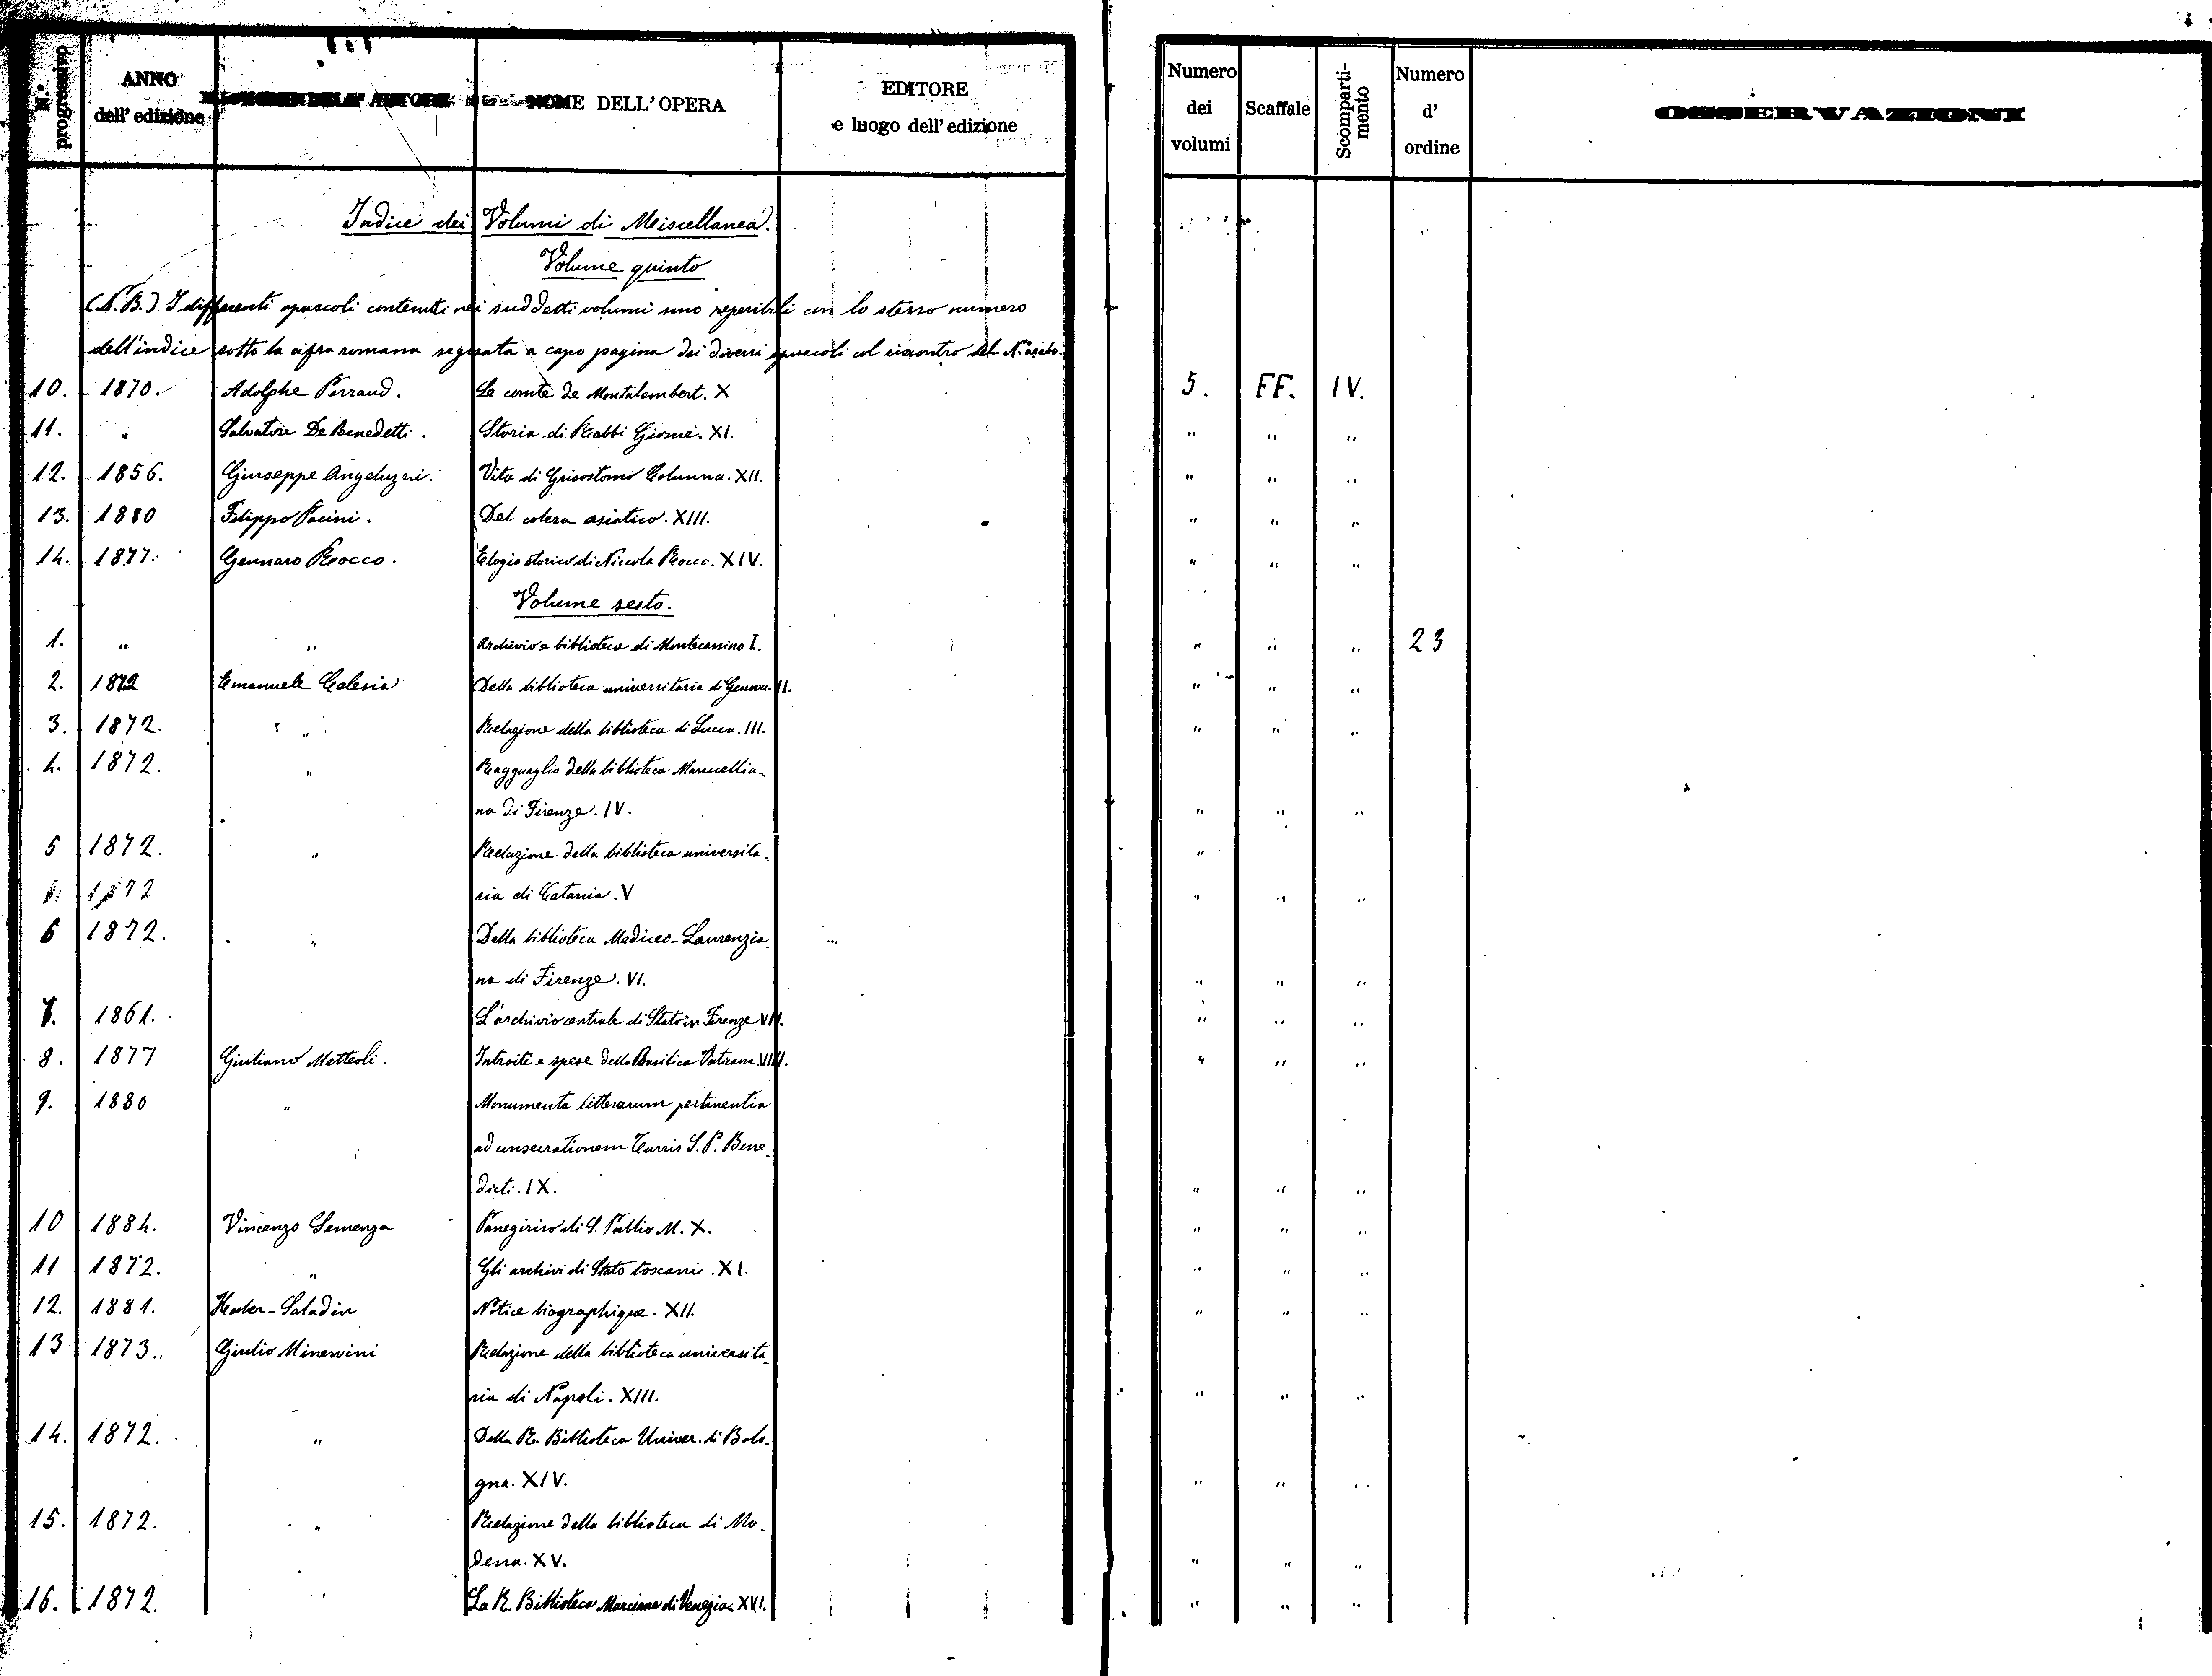 N.° progressivo
ANNO dell' edizione
AUTORE
NOME DELL' OPERA
EDITORE e luogo dell' edizione
Numero dei volumi
Scaffale
Scompartimento
Numero d' ordine
OSSERVAZIONI
Indice dei Volumi di Miscellanea.
Volume quinto
(N.B.) I differenti opuscoli contenuti nei suddetti volumi sono reperibili con lo stesso numero
dell'indice sotto la cifra romana segnata a capo pagina dei diversi opuscoli col riscontro del N.° arabo.
10. 1870. Adolphe Perraud. Le comte de Montalembert. X 5. FF. IV.
11. " Salvatore De Benedetti. Storia di Rabbi Giosuè. XI. " " "
12. 1856. Giuseppe Angeluzzi. Vita di Grisostomo Colonna. XII. " " "
13. 1880 Filippo Pacini. Del colera asiatico. XIII. " " "
14. 1877. Gennaro Rocco. Elogio storico di Niccola Rocco. XIV. " " "
Volume sesto.
1. " " Archivio e biblioteca di Montecassino I. " " " 23
2. 1872 Emanuele Celesia Della biblioteca universitaria di Genova. II. " " "
3. 1872. " Relazione della biblioteca di Lucca. III. " " "
4. 1872. " Ragguaglio della biblioteca Marucellia-
na di Firenze. IV. " " "
5 1872. " Relazione della biblioteca universita- "
1872 ria di Catania. V " " "
6 1872. " Della biblioteca Mediceo-Laurenzia-
na di Firenze. VI. " " "
7. 1861. L'archivio centrale di Stato in Firenze VII. " " "
8. 1877 Giuliano Matteoli. Introiti e spese della Basilica Vaticana. VIII. " " "
9. 1880 " Monumenta litterarum pertinentia
ad consecrationem Turris S. P. Bene-
dicti. IX. " " "
10 1884. Vincenzo Semenza Panegirico di S. Pallio M. X. " " "
11 1872. " Gli archivi di Stato toscani. XI. " " "
12. 1881. Huber-Saladin Notice biographique. XII. " " "
13 1873. Giulio Minervini Relazione della biblioteca universita-
ria di Napoli. XIII. " " "
14. 1872. " Della R. Biblioteca Univer. di Bolo-
gna. XIV. " " "
15. 1872. " Relazione della biblioteca di Mo-
dena. XV. " " "
16. 1872. " La R. Biblioteca Marciana di Venezia. XVI. " " "